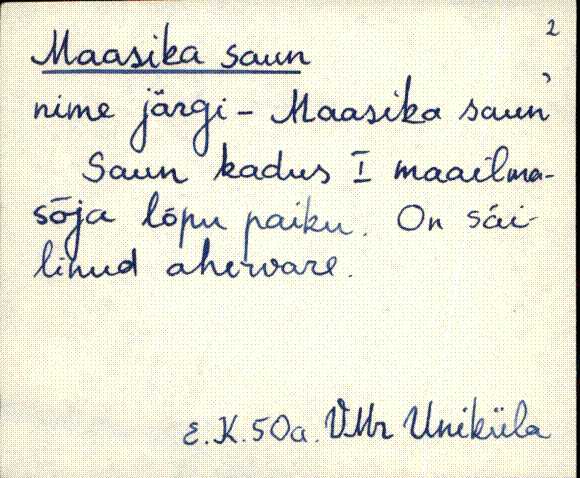 2
Maasika saun
nime järgi - Maasika saun'
Saun kadus I maailma-
sõja lõpu paiku. On säi-
linud ahervare.
E.K. 50a. VMr Uniküla